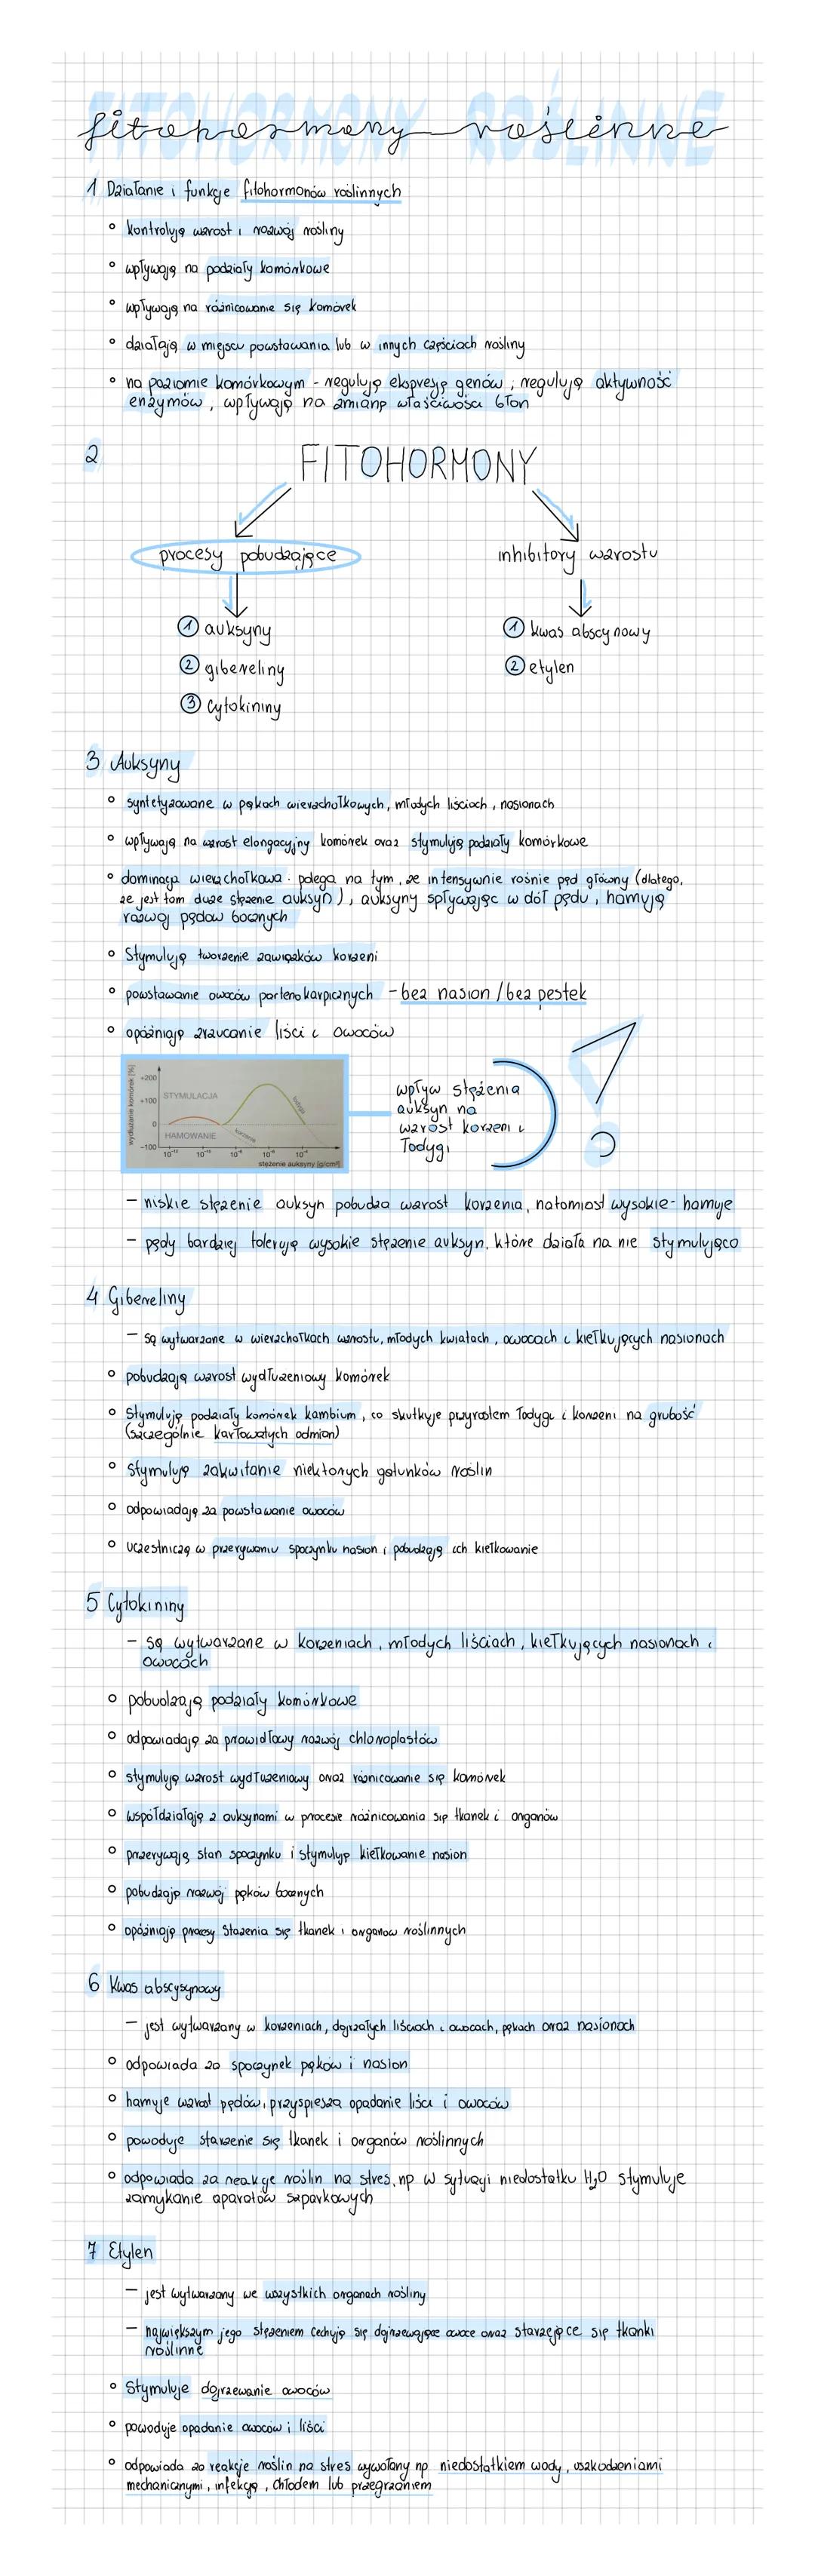 FITOHORMONY ROŚLINNE
fitohormony roślinne
1 Działanie i funkcje fitohormonów roślinnych
° kontrolują wzrost i rozwój rośliny
° wpływają na podziały komórkowe
° wpływają na różnicowanie się komórek
° działają w miejscu powstawania lub w innych częściach rośliny
° na poziomie komórkowym - regulują ekspresję genów, regulują aktywność
enzymów, wpływają na zmianę właściwości błon
2 FITOHORMONY
procesy pobudzające
inhibitory wzrostu
① auksyny
① kwas abscynowy
② gibereliny
② etylen
③ cytokininy
3 Auksyny
° syntetyzowane w pąkach wierzchołkowych, młodych liściach, nasionach
° wpływają na wzrost elongacyjny komórek oraz stymulują podziały komórkowe
° dominacja wierzchołkowa - polega na tym, że intensywnie rośnie pęd główny (dlatego,
że jest tam duże stężenie auksyn), auksyny spływając w dół pędu, hamują
rozwój pędów bocznych
° Stymulują tworzenie zawiązków korzeni
° powstawanie owoców partenokarpicznych - bez nasion / bez pestek
° opóźniają zrzucanie liści i owoców
wydłużanie komórek [%]
+200
STYMULACJA
+100
0
HAMOWANIE
-100
korzenie
łodyga
stężenie auksyny [g/cm³]
wpływ stężenia
auksyn na
wzrost korzeni i
łodygi
- niskie stężenie auksyn pobudza wzrost korzenia, natomiast wysokie - hamuje
- pędy bardziej tolerują wysokie stężenie auksyn, które działa na nie stymulująco
4 Gibereliny
- są wytwarzane w wierzchołkach wzrostu, młodych kwiatach, owocach i kiełkujących nasionach
° pobudzają wzrost wydłużeniowy komórek
° Stymulują podziały komórek kambium, co skutkuje przyrostem łodygi i korzeni na grubość
(szczególnie karłowatych odmian)
° stymulują zakwitanie niektórych gatunków roślin
° odpowiadają za powstawanie owoców
° uczestniczą w przerywaniu spoczynku nasion i pobudzają ich kiełkowanie
5 Cytokininy
- są wytwarzane w korzeniach, młodych liściach, kiełkujących nasionach i
owocach
° pobudzają podziały komórkowe
° odpowiadają za prawidłowy rozwój chloroplastów
° stymulują wzrost wydłużeniowy oraz różnicowanie się komórek
° współdziałają z auksynami w procesie różnicowania się tkanek i organów
° przerywają stan spoczynku i stymulują kiełkowanie nasion
° pobudzają rozwój pąków bocznych
° opóźniają procesy starzenia się tkanek i organów roślinnych
6 Kwas abscysynowy
- jest wytwarzany w korzeniach, dojrzałych liściach i owocach, pąkach oraz nasionach
° odpowiada za spoczynek pąków i nasion
° hamuje wzrost pędów, przyspiesza opadanie liści i owoców
° powoduje starzenie się tkanek i organów roślinnych
° odpowiada za reakcje roślin na stres, np w sytuacji niedostatku H₂O stymuluje
zamykanie aparatów szparkowych
7 Etylen
- jest wytwarzany we wszystkich organach rośliny
- największym jego stężeniem cechują się dojrzewające owoce oraz starzejące się tkanki
roślinne
° Stymuluje dojrzewanie owoców
° powoduje opadanie owoców i liści
° odpowiada za reakcje roślin na stres wywołany np niedostatkiem wody, uszkodzeniami
mechanicznymi, infekcją, chłodem lub przegrzaniem